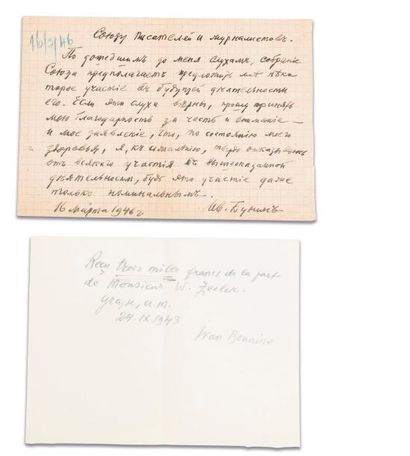 16/3/46
Союзу Писателей и журналистовъ.
По дошедшимъ до меня слухамъ, собраніе
Союза предполагаетъ предложить мнѣ нѣко
торое участіе въ будущей дѣятельности
его. Если эти слухи вѣрны, прошу принять
мою благодарность за честь и вниманіе —
и мое заявленіе, что, по состоянію моего
здоровья, я, къ сожалѣнію, отказываюсь
отъ всякаго участія въ вышесказанной
дѣятельности, будь это участіе даже
только номинальнымъ.
16 Марта 1946 г. Ив. Бунинъ
Reçu trois mille francs de la part
de Monsieur W. Zeeler.
Grasse, a.m.
24.IX.1943
Ivan Bounine